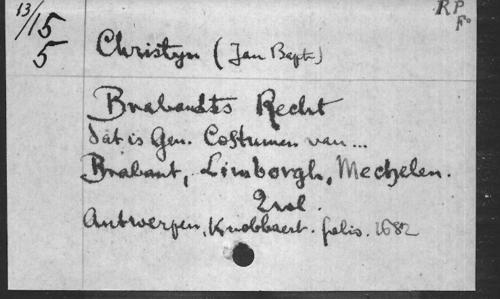 13/15
5
RP
Fo
Christyn (Jan Bapt.)
Brabandts Recht
dat is Gen. Costumen van...
Brabant, Limborgh, Mechelen.
2 vol.
Antwerpen, Knobbaert. folio. 1682